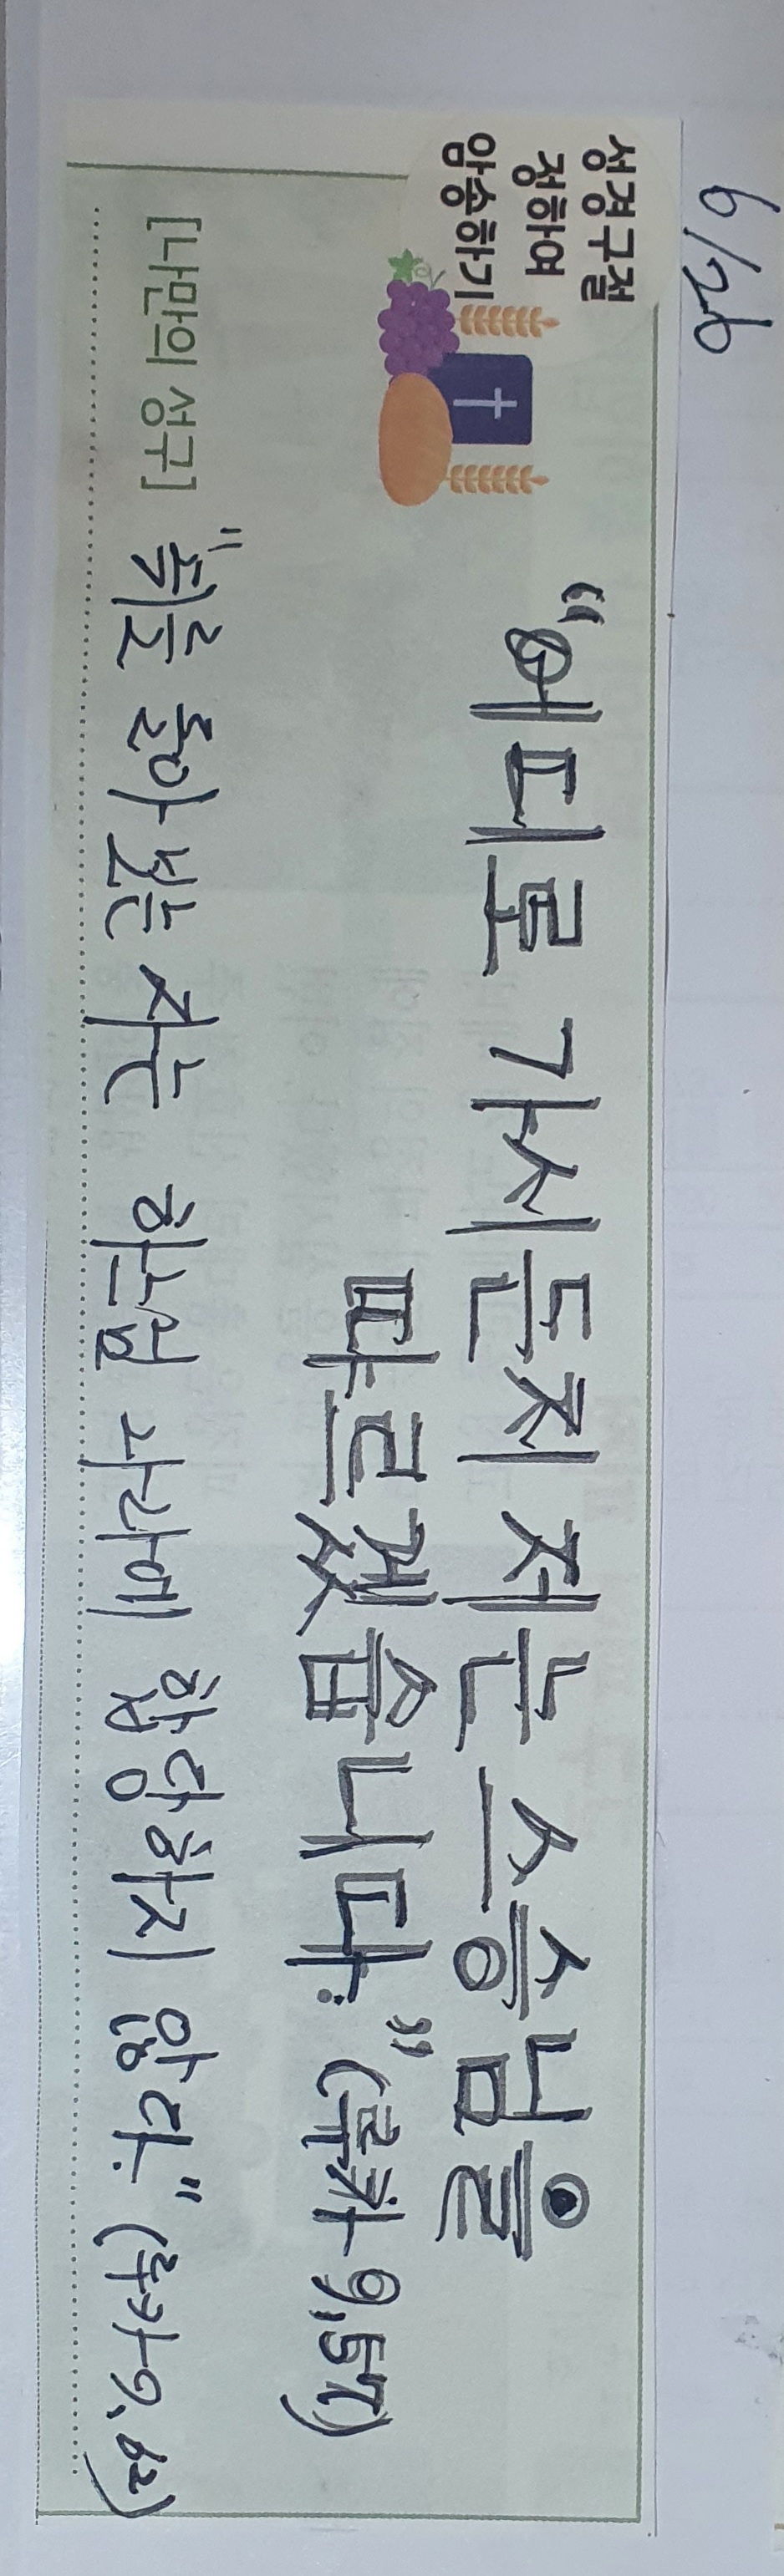 6/26
성경구절
정하여
암송하기
“어디로 가시든지 저는 스승님을
따르겠습니다.” (루카 9,57)
[나만의 성구] "뒤를 돌아보는 자는 하느님 나라에 합당하지 않다." (루카 9,62)